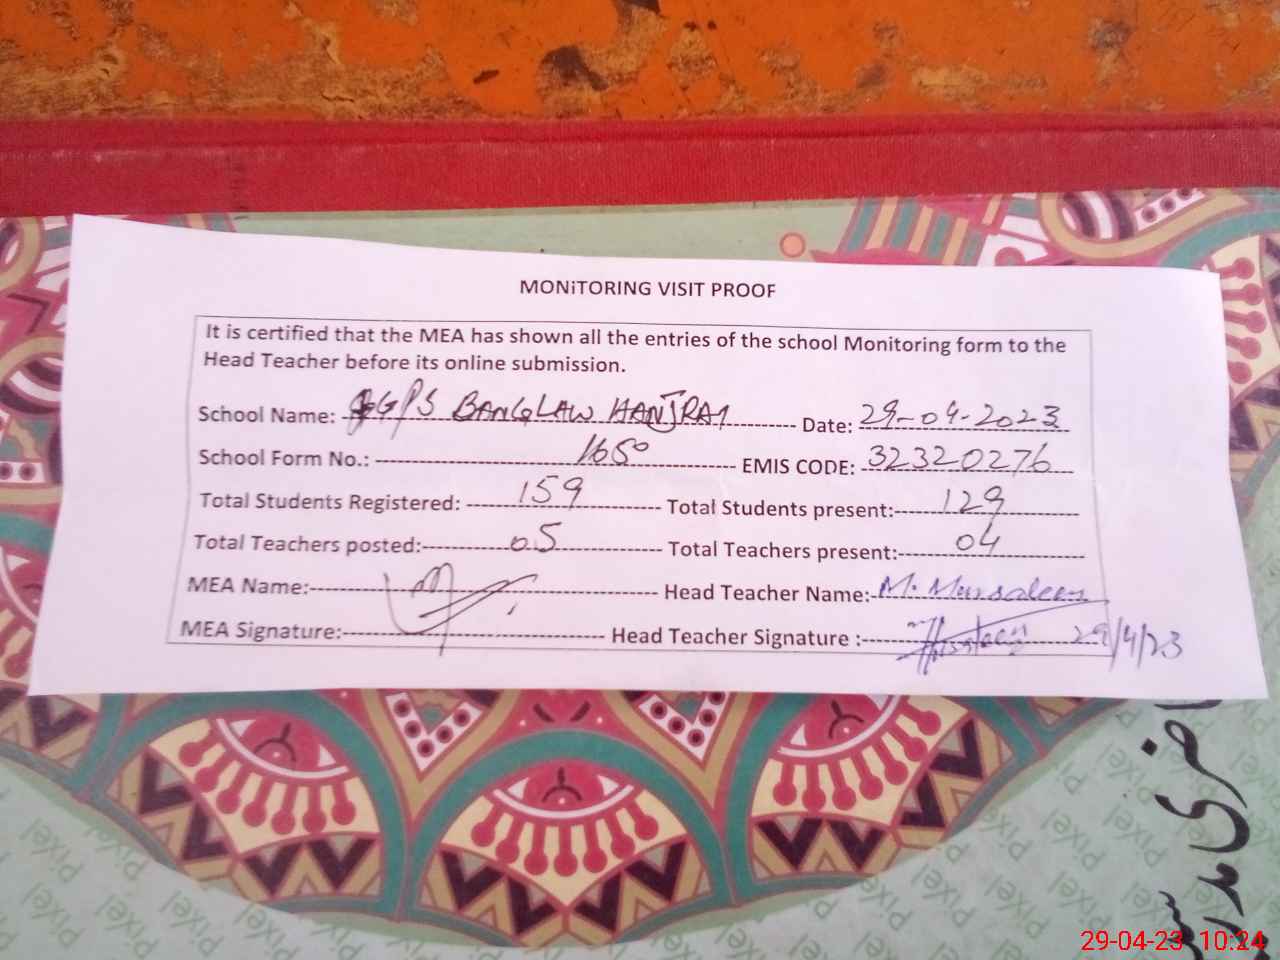 MONiTORING VISIT PROOF
It is certified that the MEA has shown all the entries of the school Monitoring form to the
Head Teacher before its online submission.
School Name: GPS BANGLAW HANJRAY Date: 29-04-2023
School Form No.: 1650 EMIS CODE: 32320276
Total Students Registered: 159 Total Students present: 129
Total Teachers posted: 05 Total Teachers present: 04
MEA Name: Head Teacher Name: M. Mursaleen
MEA Signature: Head Teacher Signature : 29/4/23
Pixel
29-04-23 10:24